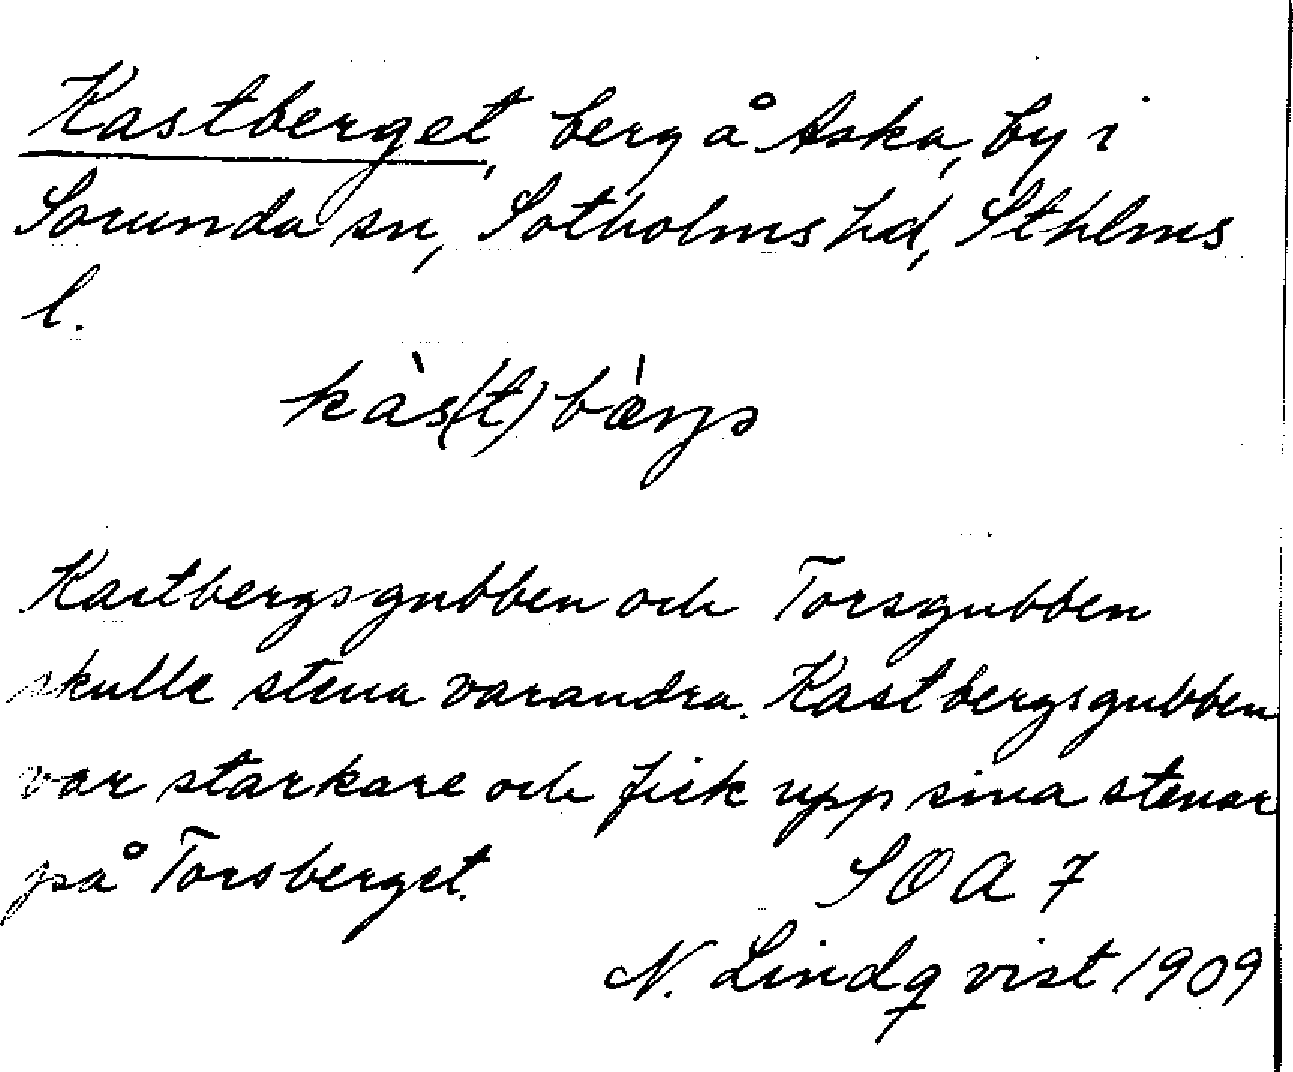 Kastberget, berg å Aska, by i
Sorunda sn, Sotholms hd, Sthlms
l.
kàs(t) bæ̀rjə
Kastbergsgubben och Torsgubben
skulle stena varandra. Kastbergsgubben
var starkare och fick upp sina stenar
på Torsberget. SOA 7
N. Lindqvist 1909